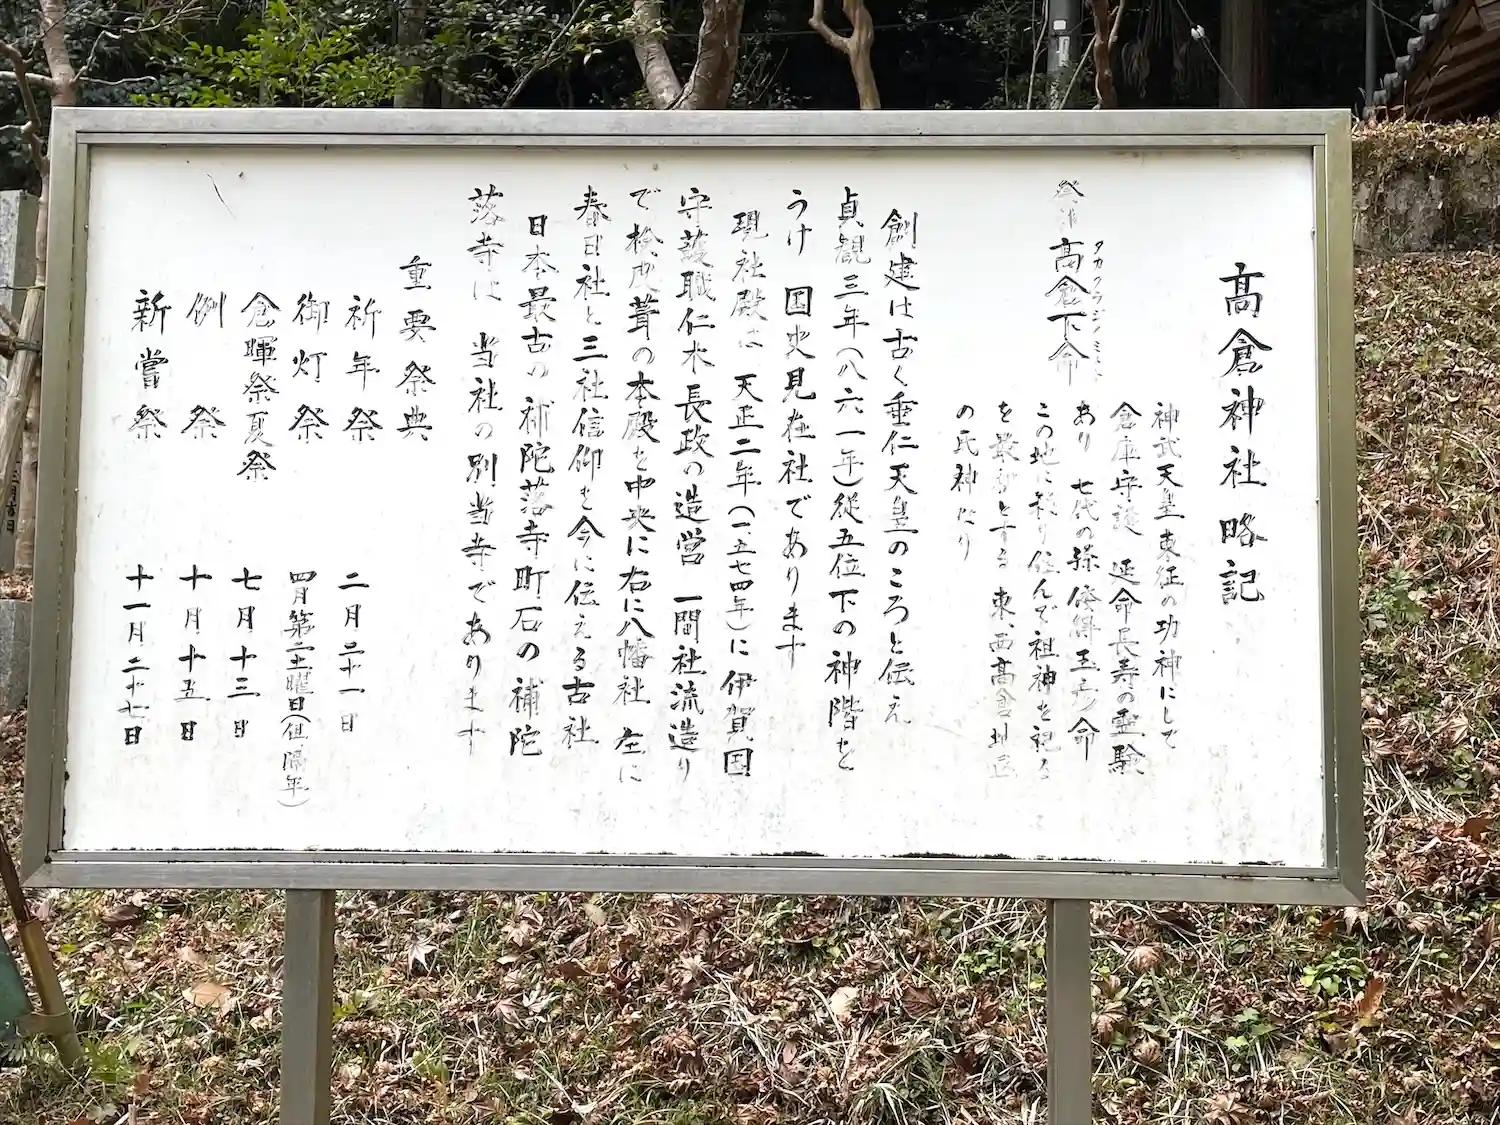 高倉神社略記
祭神
高倉下命
タカクラジノミコト
神武天皇東征の功神にして
倉庫守護 延命長寿の霊験
あり 七代の孫倭得玉彦命
この地に移り住んで祖神を祀る
を最初とする 東、西高倉
の氏神なり
創建は古く垂仁天皇のころと伝え
貞観三年(八六一年)従五位下の神階を
うけ 国史見在社であります
現社殿は 天正二年(一五七四年)に伊賀国
守護職仁木長政の造営 一間社流造り
で桧皮葺の本殿を中央に右に八幡社 左に
春日社と三社信仰を今に伝える古社
日本最古の補陀落寺町石の補陀
落寺は 当社の別当寺であります
重要祭典
祈年祭 二月二十一日
御灯祭 四月第二土曜日(但隔年)
倉暉祭夏祭 七月十三日
例祭 十月十五日
新嘗祭 十一月二十七日